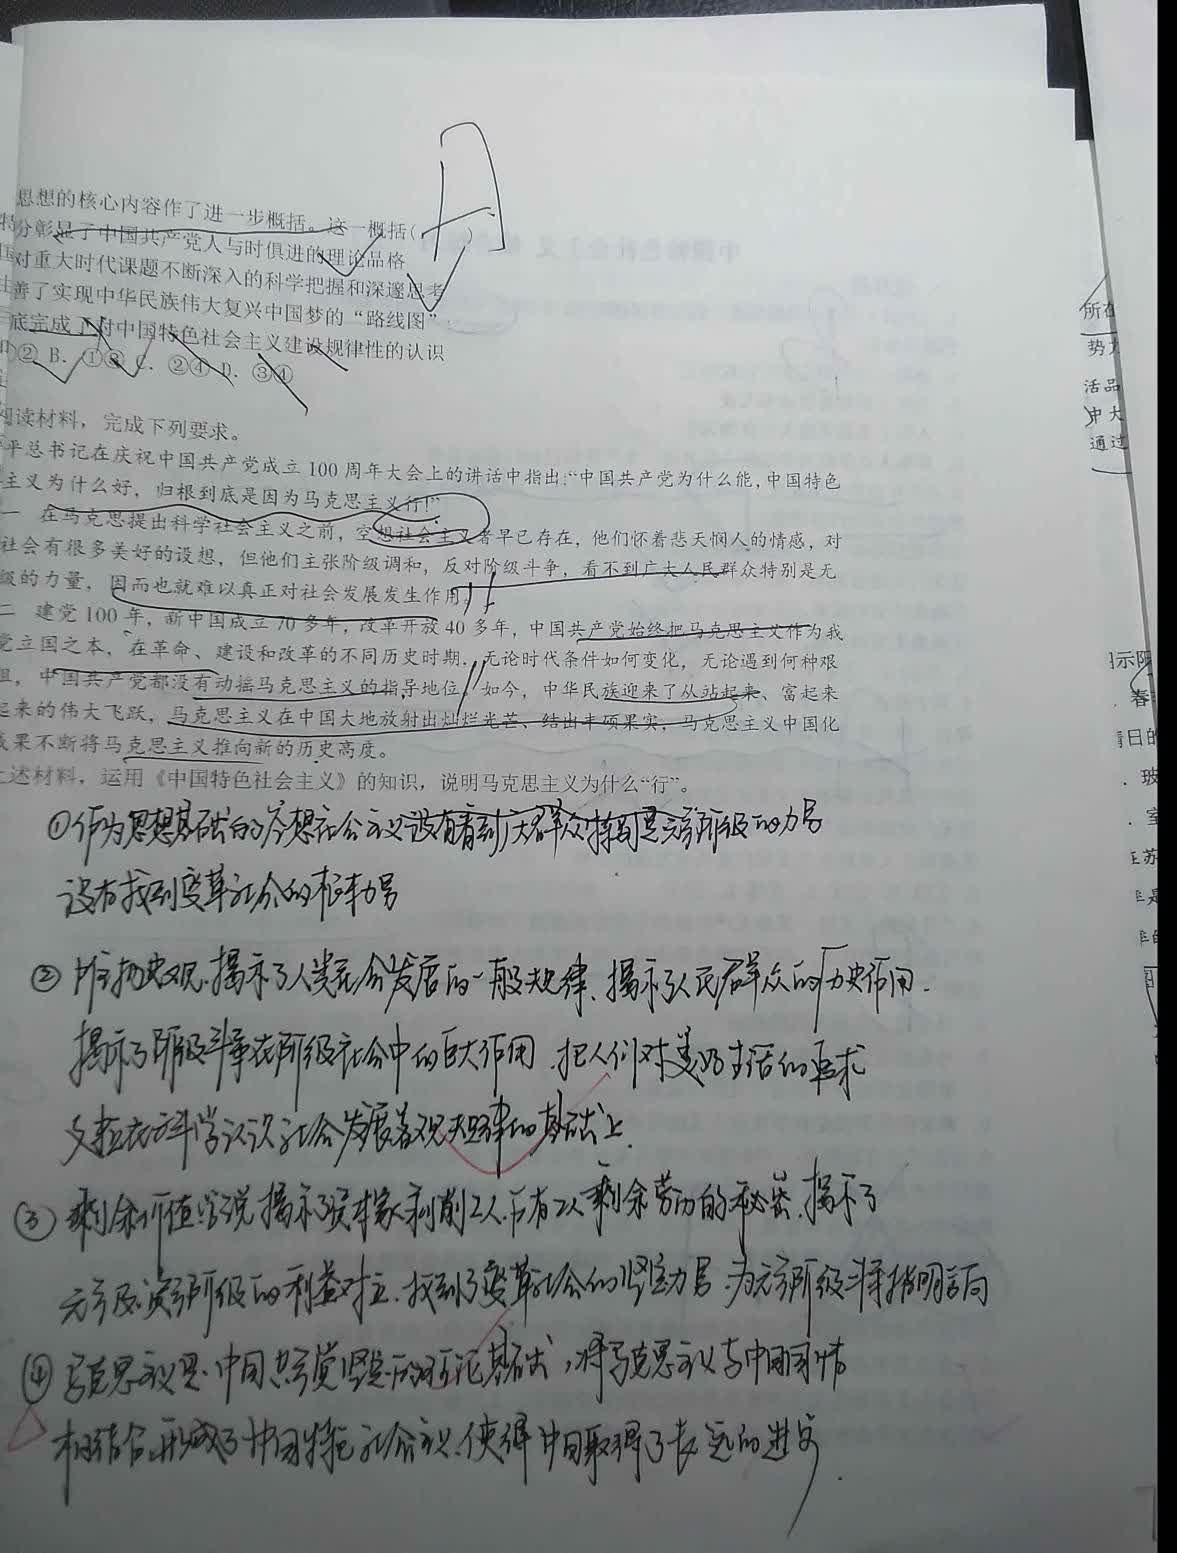 思想的核心内容作了进一步概括。这一概括(　　)
A
特分彰显了中国共产党人与时俱进的理论品格
国对重大时代课题不断深入的科学把握和深邃思考
善了实现中华民族伟大复兴中国梦的“路线图”
底完成了对中国特色社会主义建设规律性的认识
② B. ①③ C. ②④ D. ③④
阅读材料，完成下列要求。
平总书记在庆祝中国共产党成立 100 周年大会上的讲话中指出:“中国共产党为什么能,中国特色
主义为什么好，归根到底是因为马克思主义行!”
一 在马克思提出科学社会主义之前，空想社会主义者早已存在，他们怀着悲天悯人的情感，对
社会有很多美好的设想，但他们主张阶级调和，反对阶级斗争，看不到广大人民群众特别是无
级的力量，因而也就难以真正对社会发展发生作用。
二 建党 100 年，新中国成立 70 多年，改革开放 40 多年，中国共产党始终把马克思主义作为我
党立国之本，在革命、建设和改革的不同历史时期，无论时代条件如何变化，无论遇到何种艰
阻，中国共产党都没有动摇马克思主义的指导地位。如今，中华民族迎来了从站起来、富起来
起来的伟大飞跃，马克思主义在中国大地放射出灿烂光芒、结出丰硕果实，马克思主义中国化
成果不断将马克思主义推向新的历史高度。
上述材料，运用《中国特色社会主义》的知识，说明马克思主义为什么“行”。
①作为思想基础的空想社会主义没有看到广大群众特别是无产阶级的力量
没有找到变革社会的根本力量
②唯物史观,揭示了人类社会发展的一般规律、揭示了人民群众的历史作用.
揭示了阶级斗争在阶级社会中的巨大作用.把人们对美好生活的追求
建立在科学认识社会发展客观规律的基础上.
③剩余价值学说揭示了资本家剥削工人.占有工人剩余劳动的秘密.揭示了
无产及资产阶级的利益对立.找到了变革社会的坚定力量.为无产阶级斗争指明方向
④马克思主义是中国共产党坚定的理论基础,将马克思主义与中国国情
相结合,形成了中国特色社会主义.使得中国取得了长远的进步.
所在
势力
活品
中大
通过
图示阴
春
青日的
玻
室